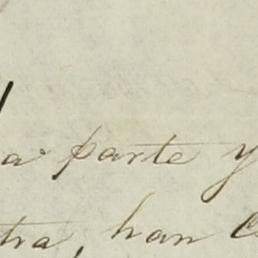 a parte y
tra, han